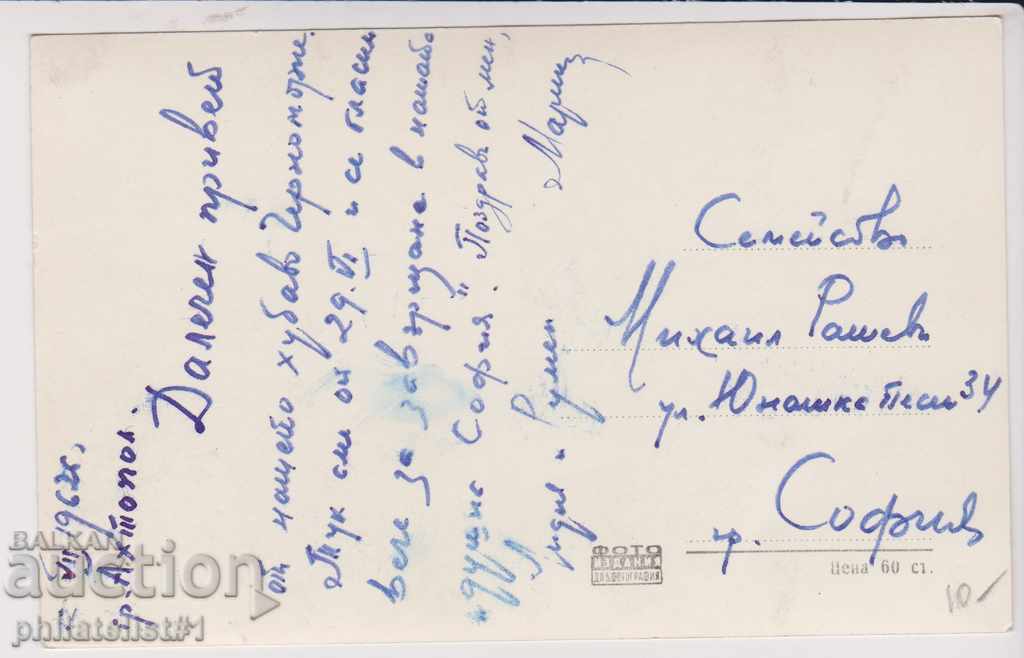 VII 1962г.,
гр. Ахтопол.
Далечен привет
от нашето хубаво Черноморие.
Тук сме от 29. VI и се гласим
вече за завръщане в нашата
"душна София". Поздрави от мен,
Лидия и Румен
Мария
Семейство
Михаил Рашеви
ул. Юнашка Песен 34
гр. София
ФОТО
ИЗДАНИЯ
ДП БЪЛГАРСКА ФОТОГРАФИЯ
Цена 60 ст.
10.-
BALKAN
auction
philatelist#1